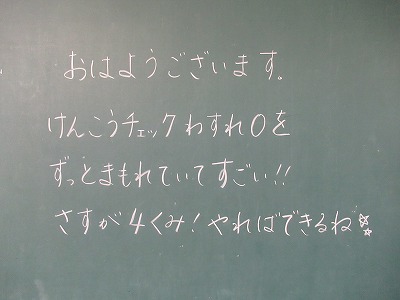 おはようございます。
けんこうチェックわすれ０を
ずっとまもれていてすごい!!
さすが4くみ!やればできるね☆☆